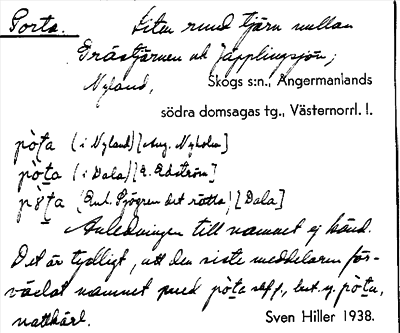 Porta. Liten rund tjärn mellan
Grästjärnen och Japplingsjön;
Nyland, Skogs s:n., Ångermanlands
södra domsagas tg., Västernorrl. l.
pòṭa (i Nyland) [Aug. Nyholm]
pòṭa (i Dala) [E. Edström]
pṭa (Enl. Sjögren det rätta) [Dala]
Anledningen till namnet ej känd.
Det är tydligt, att den siste meddelaren för-
växlat namnet med pòṭa best. f. pòṭa,
nattkärl. Sven Hiller 1938.